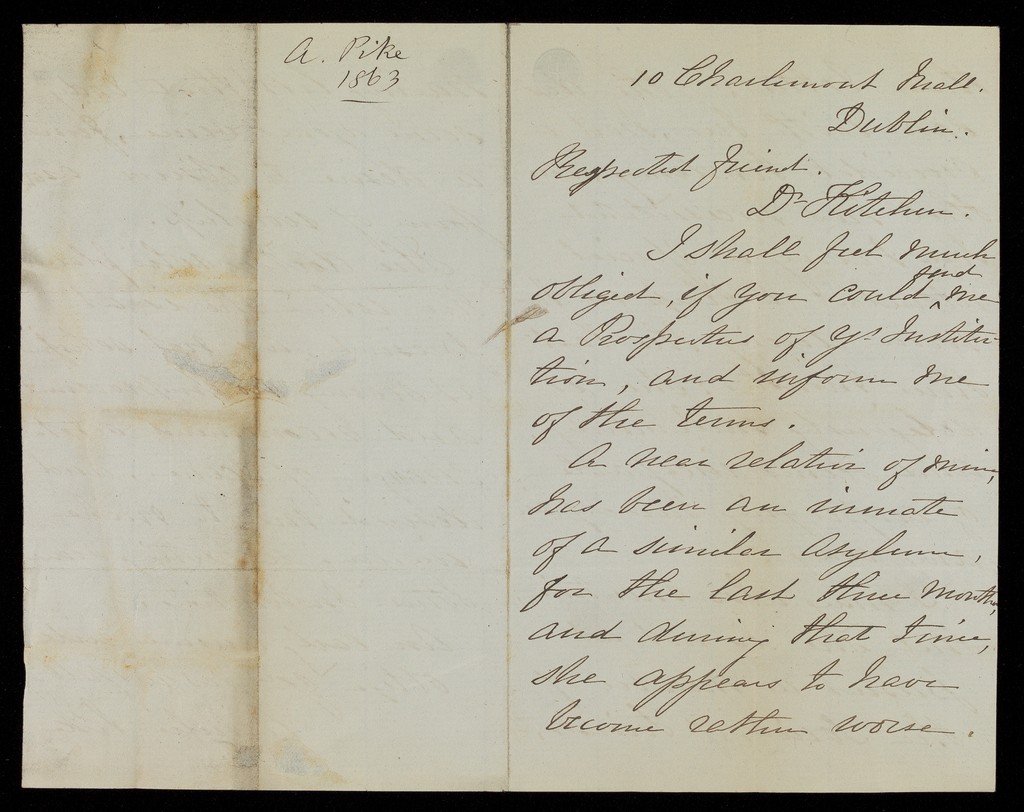 A. Pike
1863
10 Charlemont Mall.
Dublin.
Respected friend.
Dr Kitchen.
I shall feel much
send
obliged, if you could ^ me
a Prospectus of yr Institu-
tion, and inform me
of the terms.
A near relative of mine,
has been an inmate
of a similar Asylum,
for the last three months,
and during that time,
she appears to have
become rather worse.